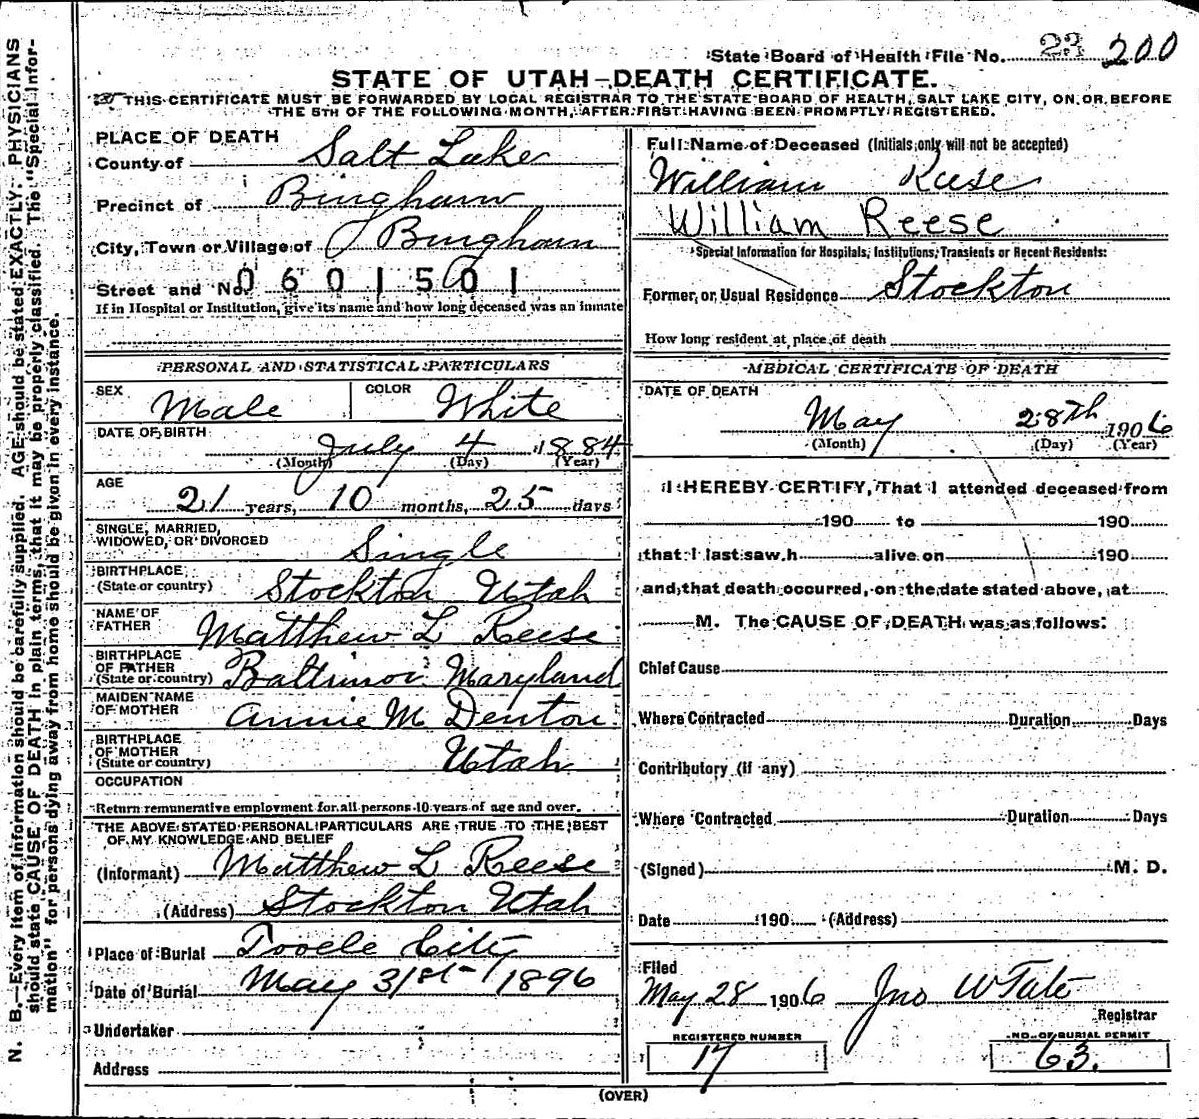 State Board of Health File No. 23 200
STATE OF UTAH—DEATH CERTIFICATE.
THIS CERTIFICATE MUST BE FORWARDED BY LOCAL REGISTRAR TO THE STATE BOARD OF HEALTH, SALT LAKE CITY, ON OR BEFORE
THE 5TH OF THE FOLLOWING MONTH, AFTER FIRST HAVING BEEN PROMPTLY REGISTERED.
N. B.—Every item of information should be carefully supplied. AGE should be stated EXACTLY. PHYSICIANS
should state CAUSE OF DEATH in plain terms, that it may be properly classified. The "Special Infor-
mation" for persons dying away from home should be given in every instance.
PLACE OF DEATH
County of Salt Lake
Precinct of Bingham
City, Town or Village of Bingham
Street and No. 0601501
If in Hospital or Institution, give its name and how long deceased was an inmate
PERSONAL AND STATISTICAL PARTICULARS
SEX Male COLOR White
DATE OF BIRTH July 4 1884
(Month) (Day) (Year)
AGE
21 years, 10 months, 25 days
SINGLE, MARRIED,
WIDOWED, OR DIVORCED Single
BIRTHPLACE
(State or country) Stockton Utah
NAME OF
FATHER Matthew L Reese
BIRTHPLACE
OF FATHER
(State or country) Baltimor Maryland
MAIDEN NAME
OF MOTHER Annie M Denton
BIRTHPLACE
OF MOTHER
(State or country) Utah
OCCUPATION
Return remunerative employment for all persons 10 years of age and over.
THE ABOVE STATED PERSONAL PARTICULARS ARE TRUE TO THE BEST
OF MY KNOWLEDGE AND BELIEF
(Informant) Matthew L Reese
(Address) Stockton Utah
Place of Burial Tooele City
Date of Burial May 31st 1896
Undertaker
Address
Full Name of Deceased (Initials only will not be accepted)
William Reese
William Reese
Special Information for Hospitals, Institutions, Transients or Recent Residents:
Former or Usual Residence Stockton
How long resident at place of death
MEDICAL CERTIFICATE OF DEATH
DATE OF DEATH
May 28th 1906
(Month) (Day) (Year)
I HEREBY CERTIFY, That I attended deceased from
190 to 190
that I last saw h alive on 190
and that death occurred, on the date stated above, at
M. The CAUSE OF DEATH was as follows:
Chief Cause
Where Contracted Duration Days
Contributory (if any)
Where Contracted Duration Days
(Signed) M. D.
Date 190 (Address)
Filed
May 28 1906 Jno W Tate
Registrar
REGISTERED NUMBER NO. OF BURIAL PERMIT
17 63.
(OVER)